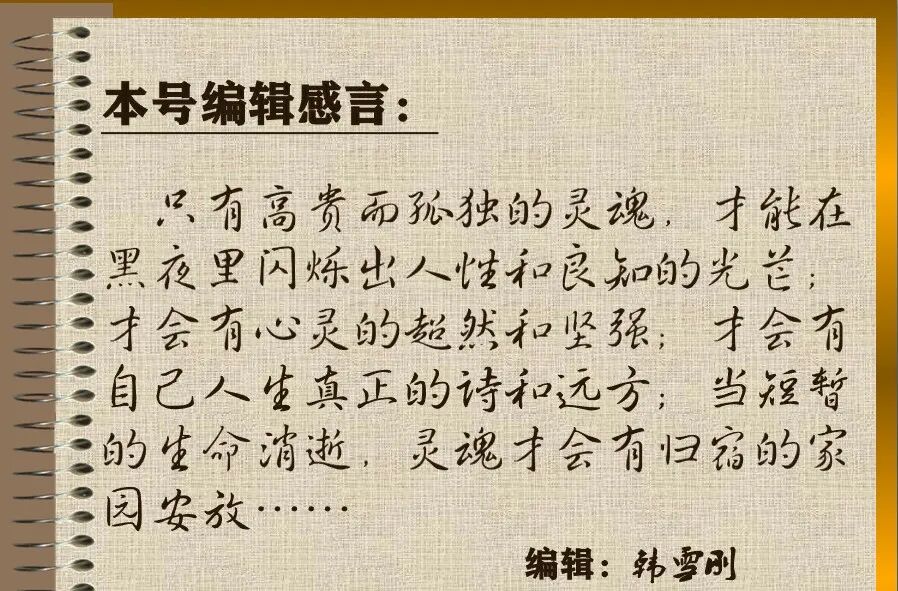 本号编辑感言：
只有高贵而孤独的灵魂，才能在
黑夜里闪烁出人性和良知的光芒；
才会有心灵的超然和坚强；才会有
自己人生真正的诗和远方；当短暂
的生命消逝，灵魂才会有归宿的家
园安放……
编辑：韩雪刚